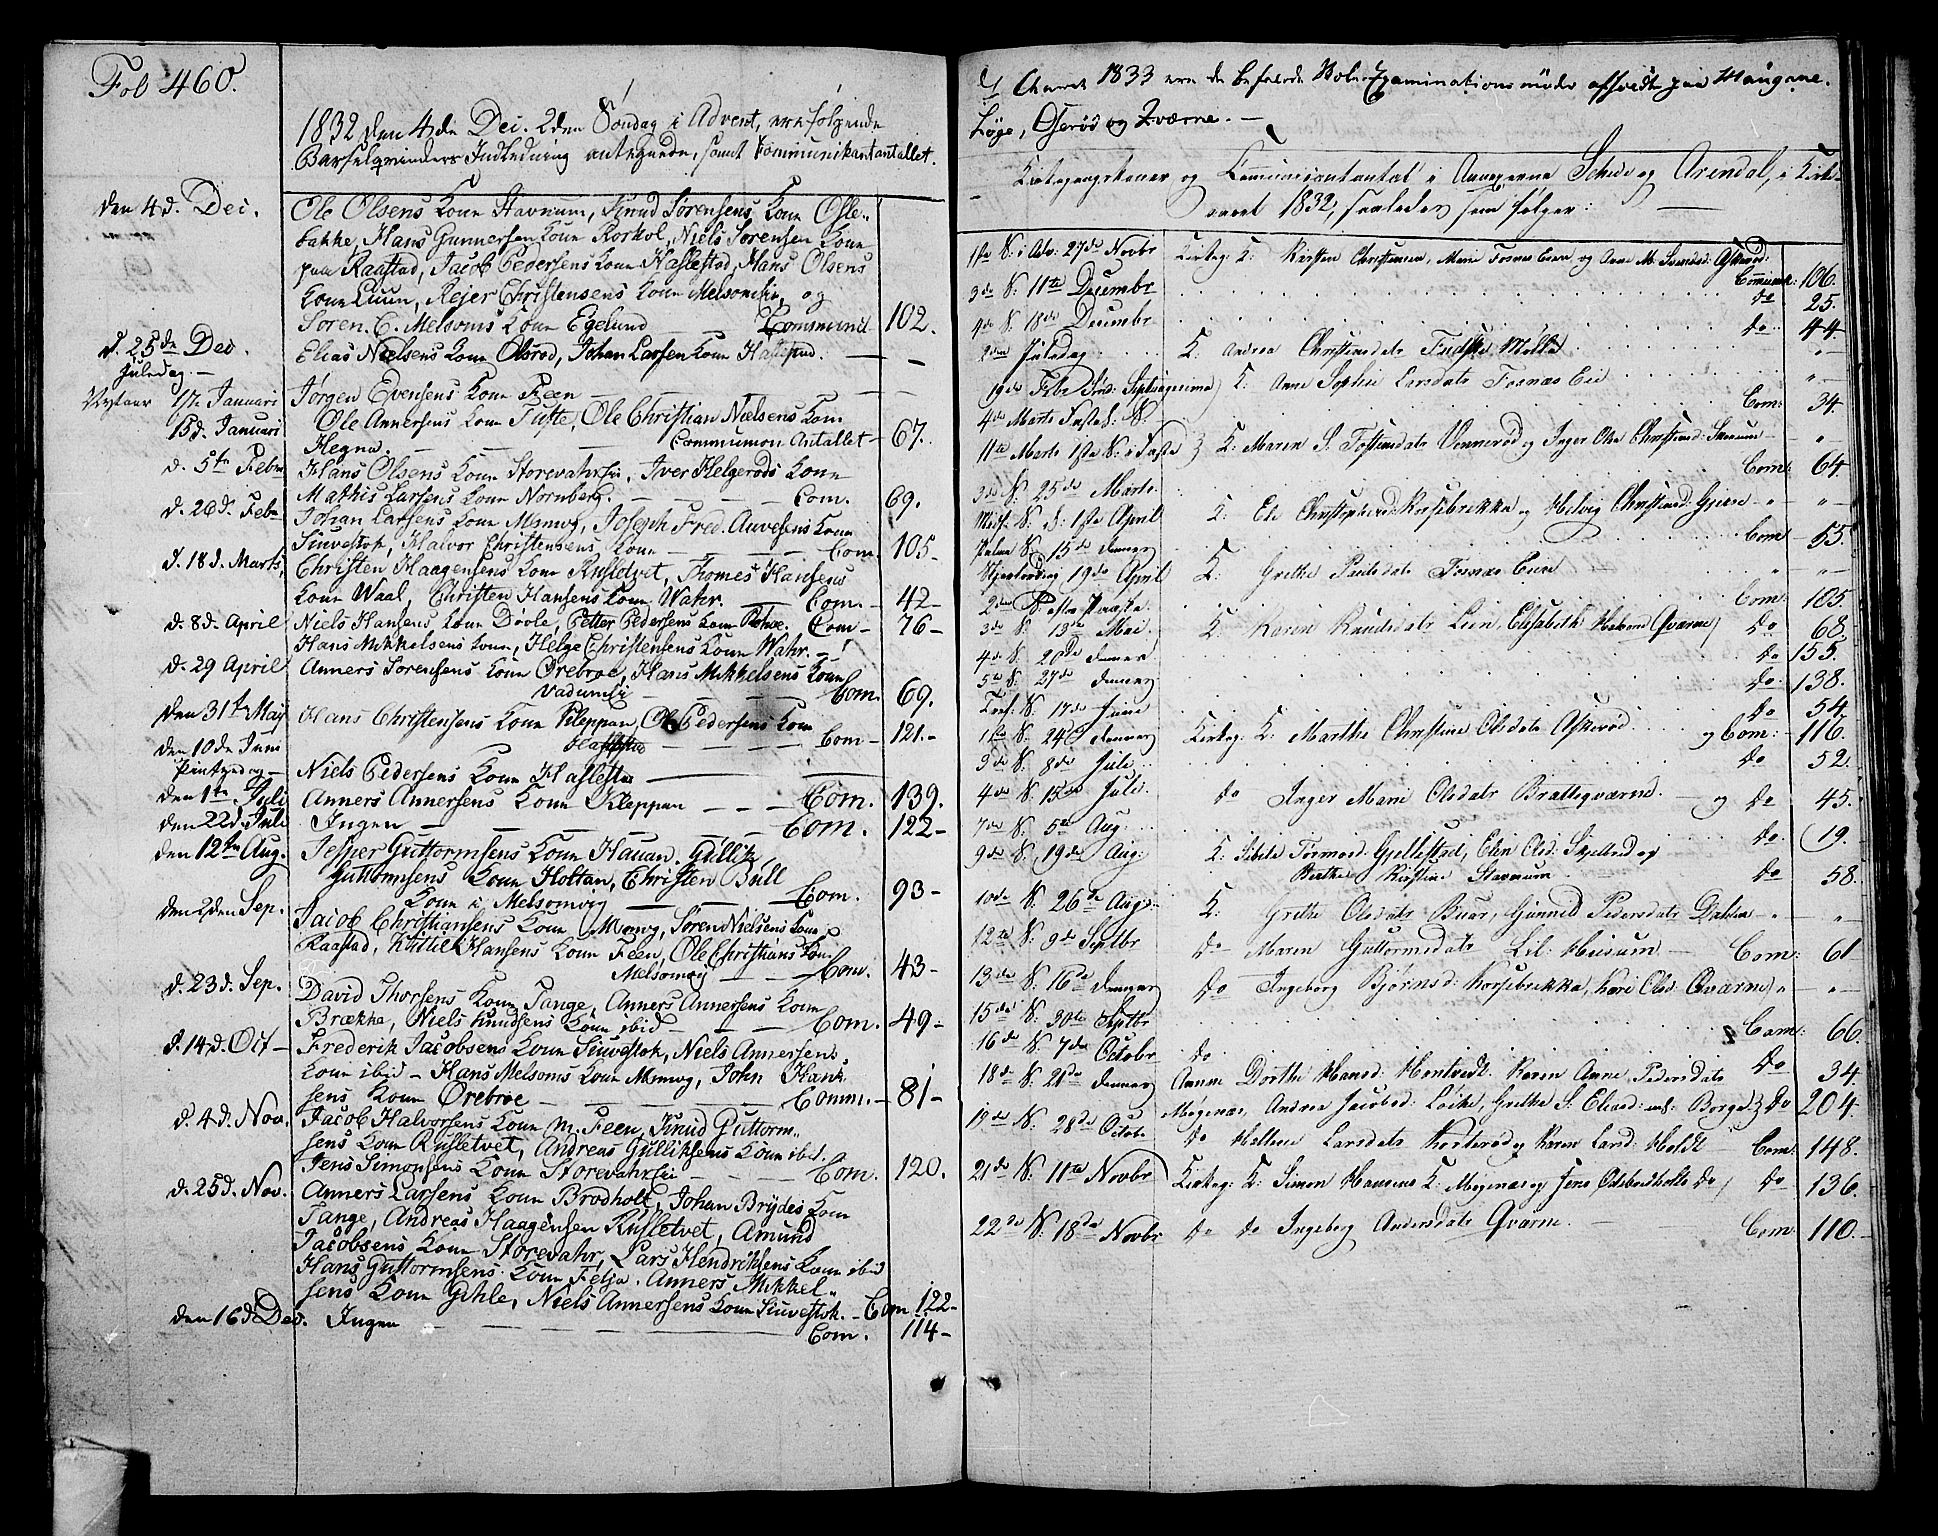 Fol 460.
1832 den 4de Dec. 2den Søndag i Advent, ere følgende
Barselqvinders Indledning antegnede, samt Kommunikantantallet.
den 4d. Dec. Ole Olsens Kone Stavnum, Knud Sørensens Kone Osle-
bakke, Hans Gunnersen Kone Korkol, Niels Sørensen Kone
paa Raastad, Jacob Pedersens Kone Haslestad, Hans Olsens
Kone Luun, Rejer Christensens Kone Melsomvig, og
Søren C. Melsoms Kone Egelund — Commund 102.
d. 25de Dec. Elias Nielsens Kone Olsrød, Johan Larsen Kone Haslestad. —
Juledag. —
Nytaar 1/1 Januari Jørgen Evensens Kone Feen —
15d. Januari Ole Annersens Kone Tufte, Ole Christian Nielsens Kone
Hegna. — Communion Antallet — 67.
d. 5te Febr Hans Olsens Kone Storevahr, Iver Helgerøds Kone
Mathis Larsens Kone Nornberg. — Com. 69.
d. 26d. Febr Johan Larsens Kone Msmvg, Joseph Fred. Auvesens Kone
Siuvestok, Halvor Christensens Kone — Com. 105 -
d. 18d. Marts, Christen Haagensens Kone Rusletvet, Thomes Hansens
Kone Waal, Christen Hansens Kone Wahr. — Com. - 42 -
d. 8d. April Niels Hansens Kone Døvle, Petter Pedersens Kone Com - 76 -
Hans Mikkelsens Kone, Helge Christensens Kone Wahr. -
d. 29 April Anners Sørensens Kone Ørebroe, Hans Mikkelsens Kone
Vadumsei — Com. 69.
den 31te May Hans Christensens Kone Kleppan, Ole Pedersens Kone
Haslestad — Com - 121.-
den 10de Juni
Pintsedag — Niels Pedersens Kone Haslestad —
den 1te Juli Anners Annersens Kone Kleppan — Com. 139.
den 22d. Juli Ingen — Com. 122 -
den 12te Aug. Jesper Guttormsens Kone Hauan, Gullik
Guttormsens Kone Holtan, Christen Bull
Kone i Melsomvig — Com. 93 -
den 2den Sep. Jacob Christiansens Kone Msmvg, Søren Nielsens Kone
Raastad, Kittil Hansens Kone Feen, Ole Christians Kone
Melsomvig — Com. 43 -
d. 23d. Sep. David Thorsens Kone Tange, Anners Annersens Kone
Brække, Niels Knudsens Kone ibid — Com. 49 -
d. 14d. Oct - Frederik Jacobsens Kone Siuvestok, Niels Annersens
Kone ibid - Hans Melsoms Kone Msmvg, John Hans
sens Kone Ørebroe — Comm. - 81 -
d. 4d. Nov. Jacob Halvorsens Kone M. Feen, Knud Guttorm-
sens Kone Rusletvet, Andreas Gulliksens Kone ibid.
Jens Simonsens Kone Storevahr — Com. 120.
d. 25d. Nov. Anners Larsens Kone Brodholt, Johan Brydes Kone
Tange, Andreas Haagensen Rusletvet, Amund
Jacobsens Kone Storevahr, Lars Hendriksens Kone ibid
Hans Guttormsens Kone Felja. Anners Mikkel-
sens Kone Gihle, Niels Annersens Kone Siuvestok. - Com 122 -
den 16d Dec. Ingen — Com. 114 -
I Aaret 1833 ere de befalede Skole-Examinationsmøder afholdt paa Haugane,
Løge, Gjerød og Kværne. —
Kirkegangskoner og Communicantantal i Annexerne Skee og Arendal, i Kirke-
aaret 1832, saaledes som følger: —
1ste S. i Adv. 27de Novbr Kirkeg: K: Kirsten Christensen, Marie Fosnæs Eie og Anne M. Svendsd: Askerød
Communic: 106.
3de S. 11te Decembr do 25.
4de S. 18de Decembr do 44
2den Juledag K: Andrea Christensdatr Fuske Mølla "
19de Febr Søn: Septuagesima) K: Anne Sophie Larsdatr Fosnæs Eie "
4de Marts Faste S: Com: 34.
11te Marts 1ste S. i Faste } K: Maren S. Tostensdatr Vennerød og Inger Olea Christensd: Stavnum - "
3de S. 25de Marts Com: 64.
Midf. S. 1ste April K: Christophersd: Korsebrekke og Helvig Christensd: " "
Palme S. 15de denne Com - 55.
Skjertorsdag 19de April K: Grethe Paulsdatr Fosnæs Eie " "
2den S. efter Paaske Com: 105.
3de S. 13de Mai K: Karen Knudsdatr Lien, Elisabeth Qværne) do 68
4de S. 20de denne do 155.
5te S. 27de denne do 138.
Tref. S. 17de Junii do 54
1ste S. 24de denne Kirkeg: K: Marthe Christine Olsdatr Askerød og Com: - 116.
3de S. 8de Julii do 52.
4de S. 15de Julii do Inger Marie Olsdatr Bratteqværne — og do 45.
7de S. 5te Aug: do 19.
9de S. 19de Aug: K: Sibile Tormod: Gjellestad, Elen Olsd: Skjelbred og
Berthe Kirstine Stavnum do 58.
10de S. 26de Aug: K: Grethe Olsdatr Buer, Gunnild Pedersdatr Dahlen " "
12te S. 9de Septbr do Maren Guttormsdatr Lil: Husum — Com: 61
13de S. 16de denne do Ingeborg Bjørnsd: Korsebrekka, Kari Olsd: Qværne) " "
15de S. 30te Septbr Com: 66.
16de S. 7de Octobr do do 34.
18de S. 21de denne Anne Dorthe Hansd: Hontvedt. Karen Anne Pedersdatr
19de S. 28de Octobr Møgenæs, Andrea Jacobsd: Løike, Grethe S. Eliasd: Borge } do 204.
do Hellene Larsdatr Korterød og Karen Larsd: Holdt Com: 148.
21de S. 11te Novbr Kirkeg: K: Simon Hansens K: Møgenæs og Jens Odsbersholts do / do 136.
22de S. 18de Novbr do do Ingeborg Andersdatr Qværne. — Com: 110.